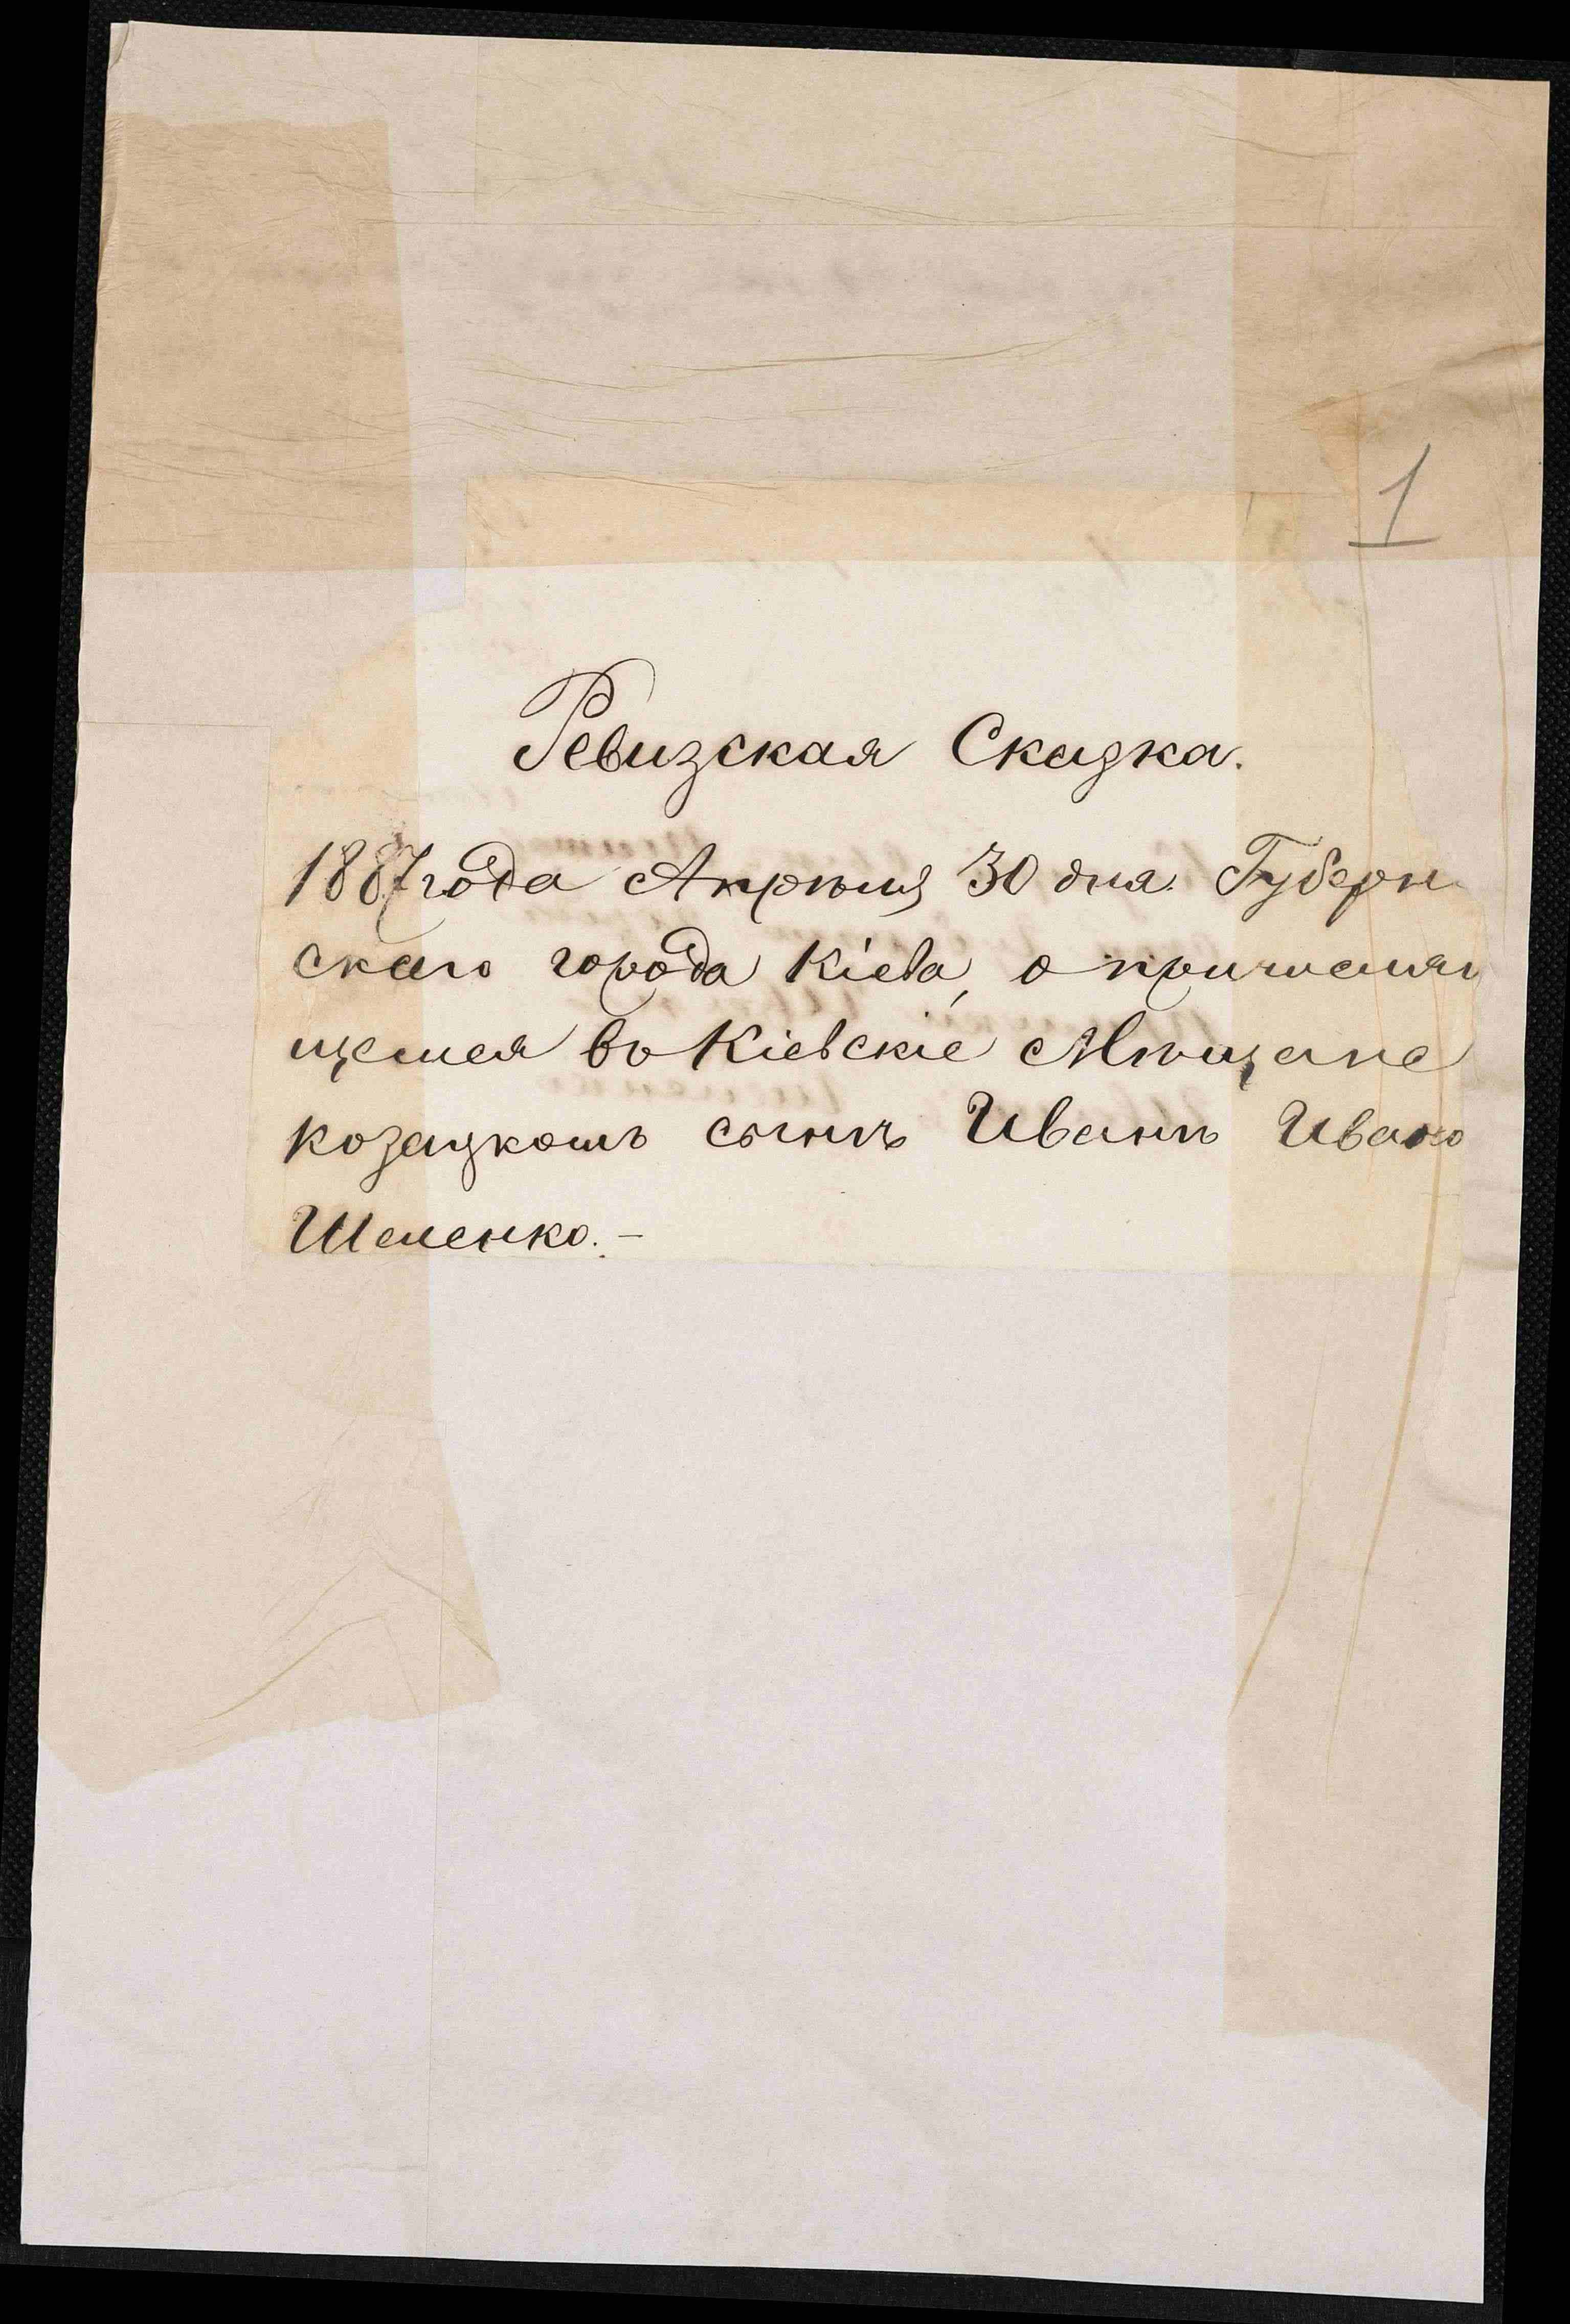 1
Ревизская Сказка.
1887 года Апрѣля 30 дня. Губерн
скаго города Кіева, о причисляю
щемся въ Кіевскіе Мѣщане
козацкомъ сынѣ Иванѣ Ивано
Шеленко. –